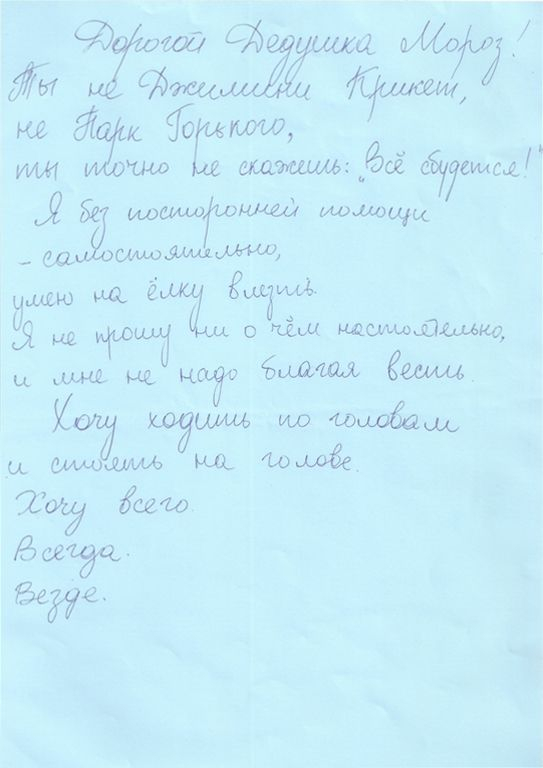 Дорогой Дедушка Мороз!
Ты не Джимини Крикет,
не Парк Горького,
ты точно не скажешь: „Всё сбудется!"
Я без посторонней помощи
- самостоятельно,
умею на ёлку влезть.
Я не прошу ни о чём настоятельно,
и мне не надо благая весть.
Хочу ходить по головам
и стоять на голове.
Хочу всего.
Всегда.
Везде.